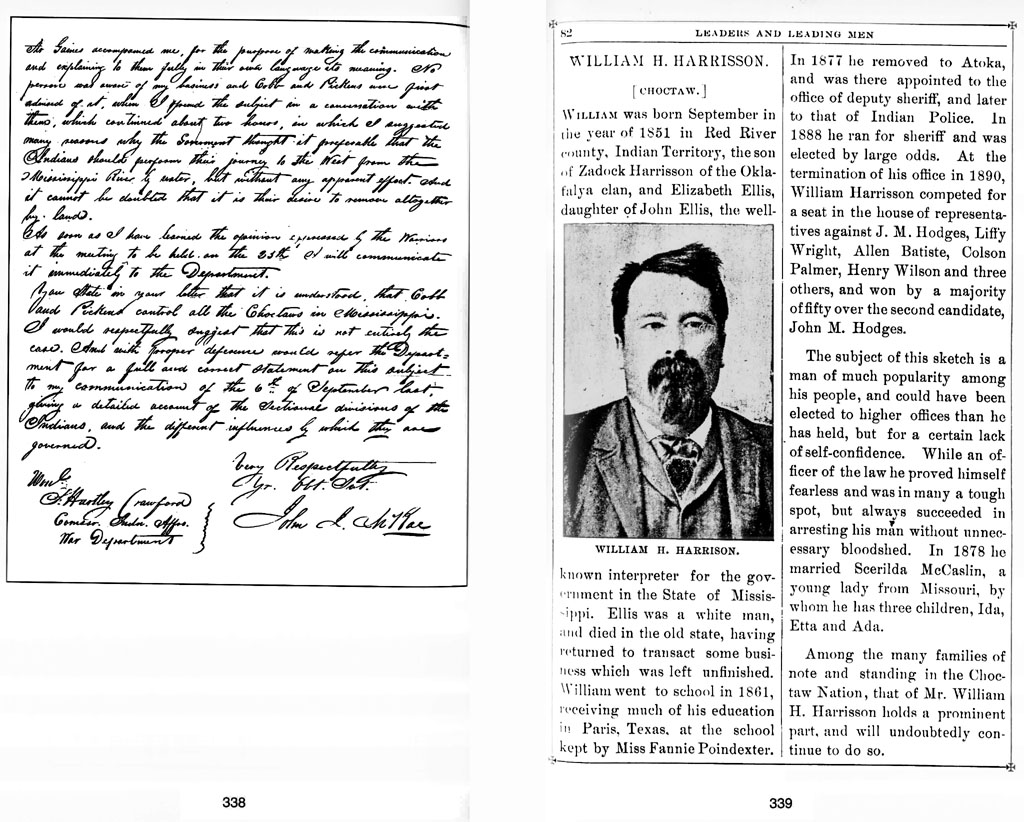 Mr Gaines accompanied me, for the purpose of making the communication
and explaining to them fully in their own language its meaning. No
person was aware of my business and Cobb and Pickens were first
advised of it, when I opened the subject in a conversation with
them, which continued about two hours, in which I suggested
many reasons why the Government thought it preferable that the
Indians should perform their journey to the West from the
Mississippi River by water, but without any apparent effect. And
it cannot be doubted that it is their desire to remove altogether
by land.
As soon as I have learned the opinion expressed by the Warriors
at the meeting to be held on the 25th I will communicate
it immediately to the Department.
You State in your letter that it is understood, that Cobb
and Pickens control all the Choctaws in Mississippi.
I would respectfully suggest that this is not entirely the
case. And with proper deference would refer the Depart-
ment for a full and correct statement on this subject
to my communication of the 6th of September last,
giving a detailed account of the Sectional divisions of the
Indians, and the different influences by which they are
governed.
Very Respectfully
Yr. Obt. Svt.
John J. McRae
T. Hartley Crawford
Comssr. Indn. Affrs.
War Department
338
82 LEADERS AND LEADING MEN
WILLIAM H. HARRISSON.
[CHOCTAW.]
WILLIAM was born September in
the year of 1851 in Red River
county, Indian Territory, the son
of Zadock Harrisson of the Okla-
falya clan, and Elizabeth Ellis,
daughter of John Ellis, the well-
WILLIAM H. HARRISON.
known interpreter for the gov-
ernment in the State of Missis-
sippi. Ellis was a white man,
and died in the old state, having
returned to transact some busi-
ness which was left unfinished.
William went to school in 1861,
receiving much of his education
in Paris, Texas, at the school
kept by Miss Fannie Poindexter.
In 1877 he removed to Atoka,
and was there appointed to the
office of deputy sheriff, and later
to that of Indian Police. In
1888 he ran for sheriff and was
elected by large odds. At the
termination of his office in 1890,
William Harrisson competed for
a seat in the house of representa-
tives against J. M. Hodges, Liffy
Wright, Allen Batiste, Colson
Palmer, Henry Wilson and three
others, and won by a majority
of fifty over the second candidate,
John M. Hodges.
The subject of this sketch is a
man of much popularity among
his people, and could have been
elected to higher offices than he
has held, but for a certain lack
of self-confidence. While an of-
ficer of the law he proved himself
fearless and was in many a tough
spot, but always succeeded in
arresting his man without unnec-
essary bloodshed. In 1878 he
married Scerilda McCaslin, a
young lady from Missouri, by
whom he has three children, Ida,
Etta and Ada.
Among the many families of
note and standing in the Choc-
taw Nation, that of Mr. William
H. Harrisson holds a prominent
part, and will undoubtedly con-
tinue to do so.
339